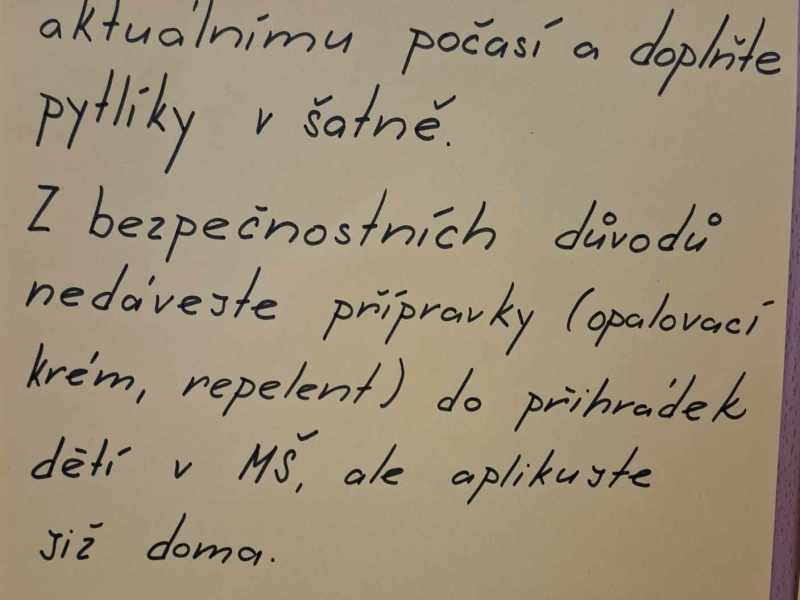 aktuálnímu počasí a doplňte
pytlíky v šatně.
Z bezpečnostních důvodů
nedávejte přípravky (opalovací
krém, repelent) do přihrádek
dětí v MŠ, ale aplikujte
již doma.